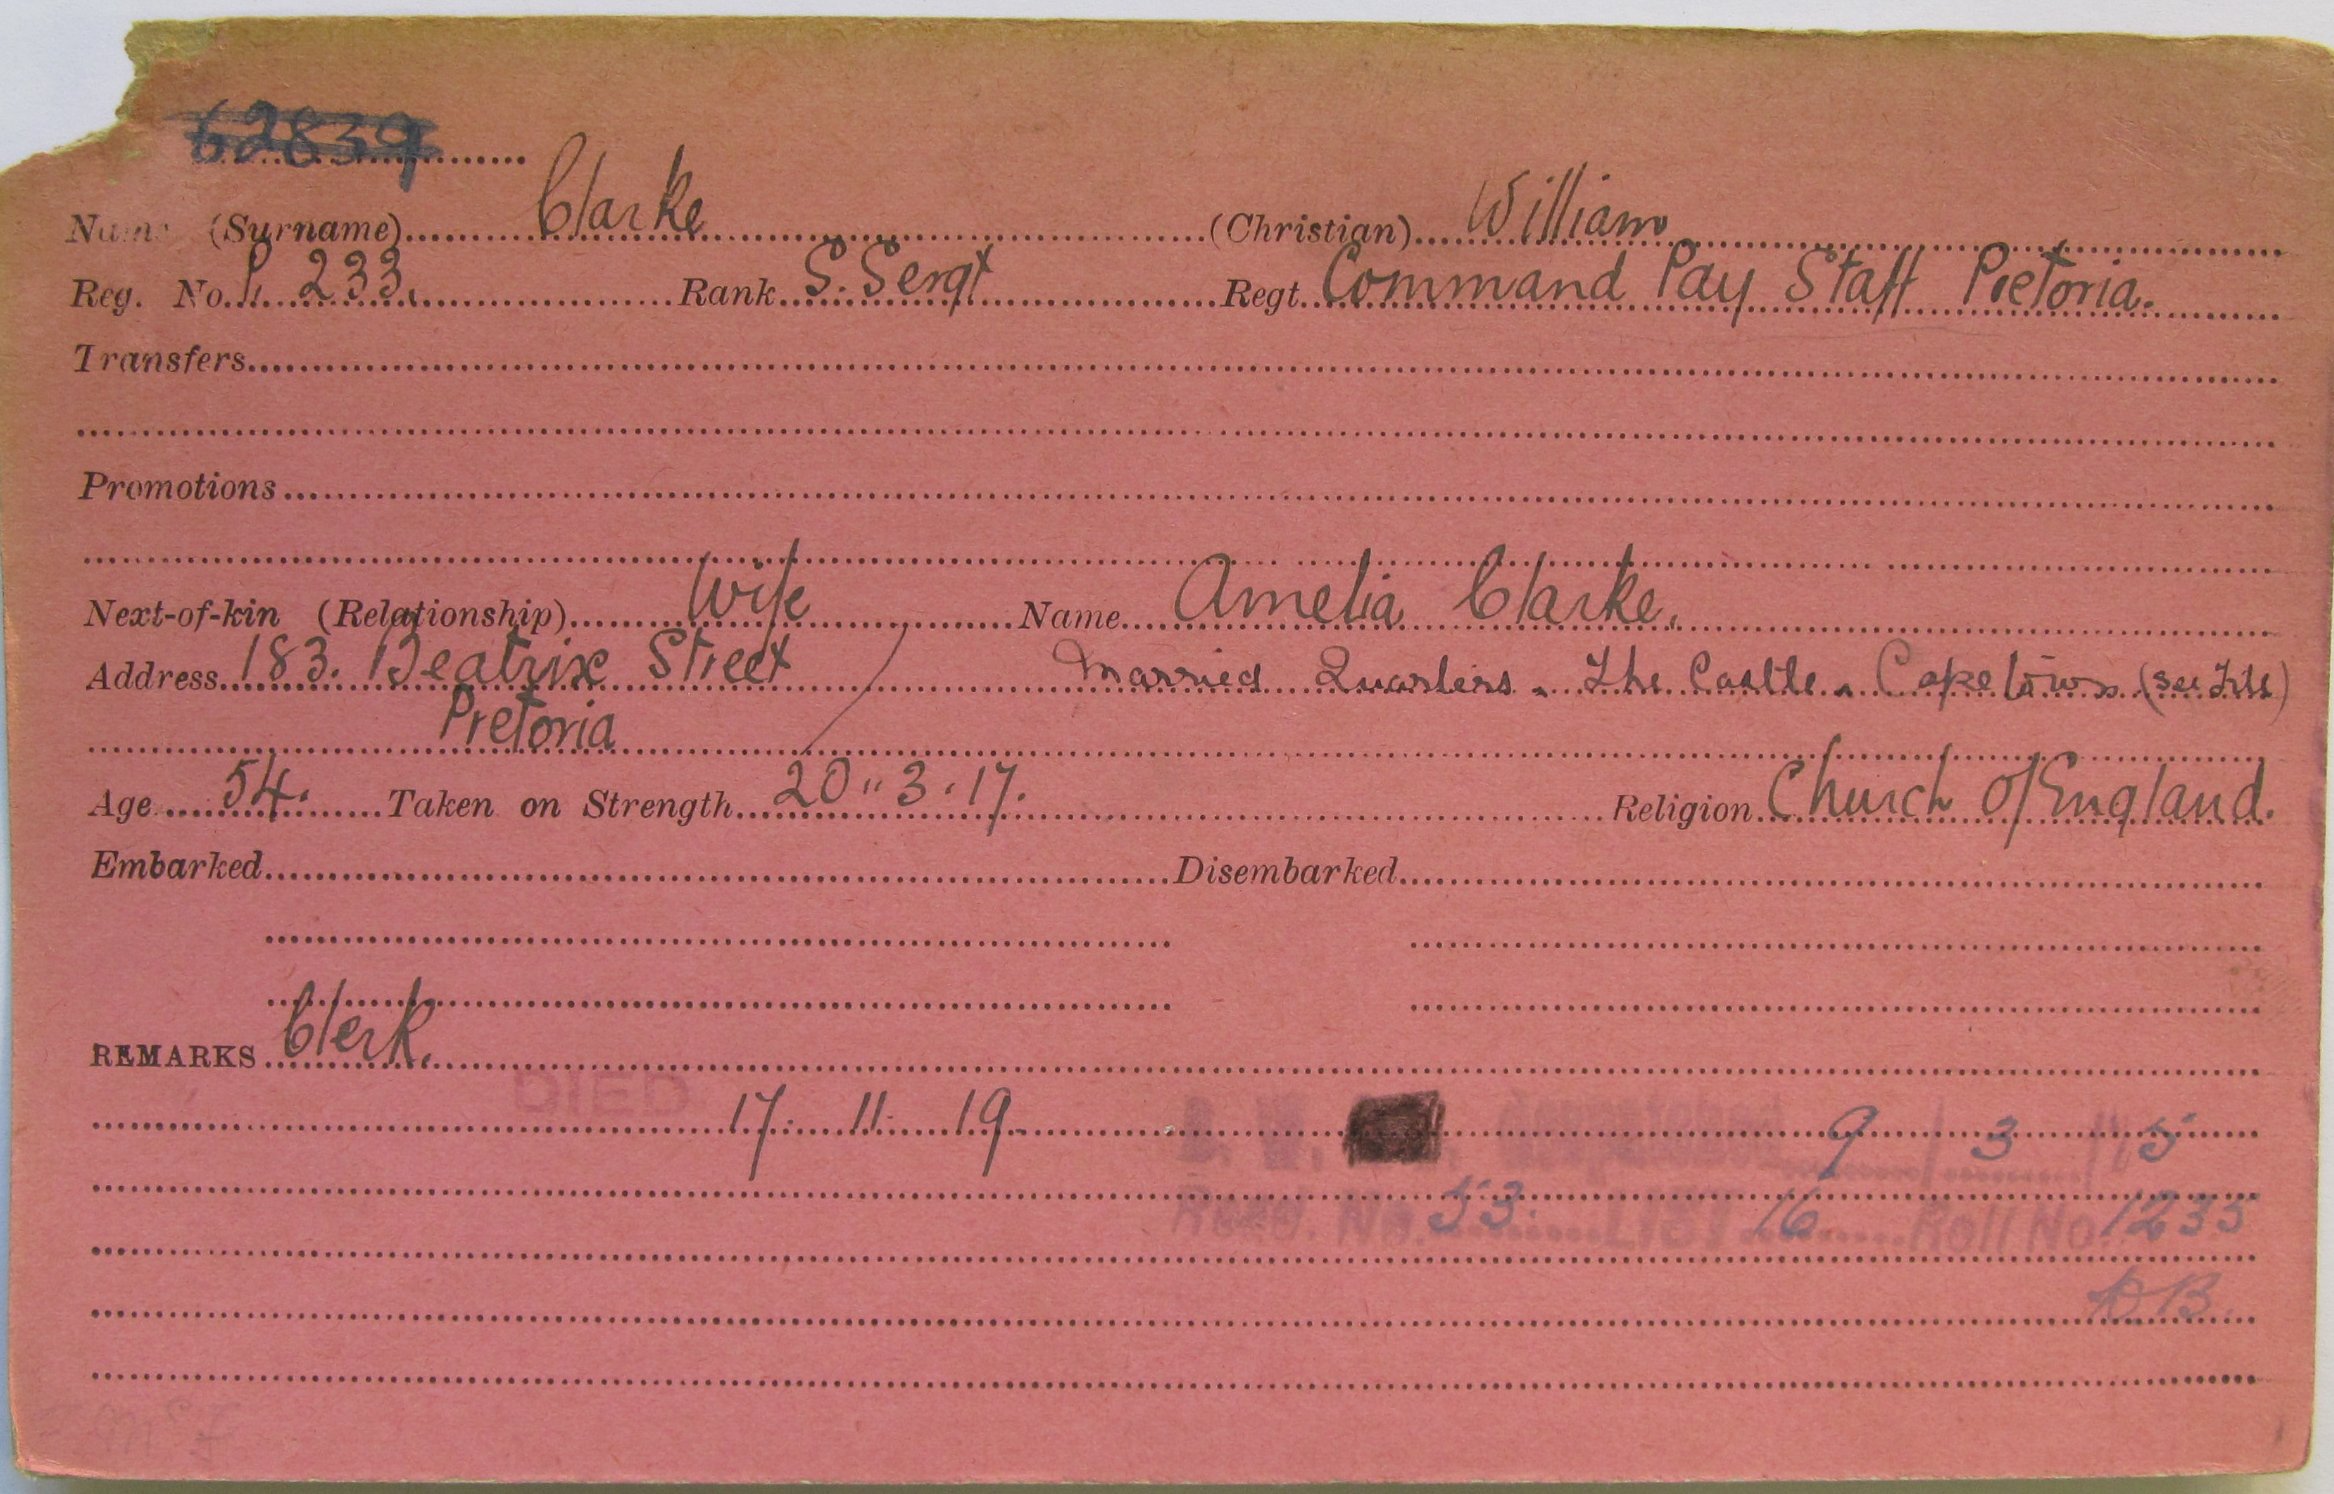 62839
Name (Surname) Clarke (Christian) William
Reg. No. P. 233. Rank S. Sergt Regt. Command Pay Staff Pretoria.
Transfers
Promotions
Next-of-kin (Relationship) Wife Name Amelia Clarke.
Address 183. Beatrix Street / Married Quarters. The Castle. Cape Town (see File)
Pretoria
Age 54. Taken on Strength 20"3.17. Religion Church of England.
Embarked Disembarked
REMARKS Clerk.
DIED 17. 11. 19. B. W. despatched 9 3
No. 53. LIST 16 Roll No. 1235